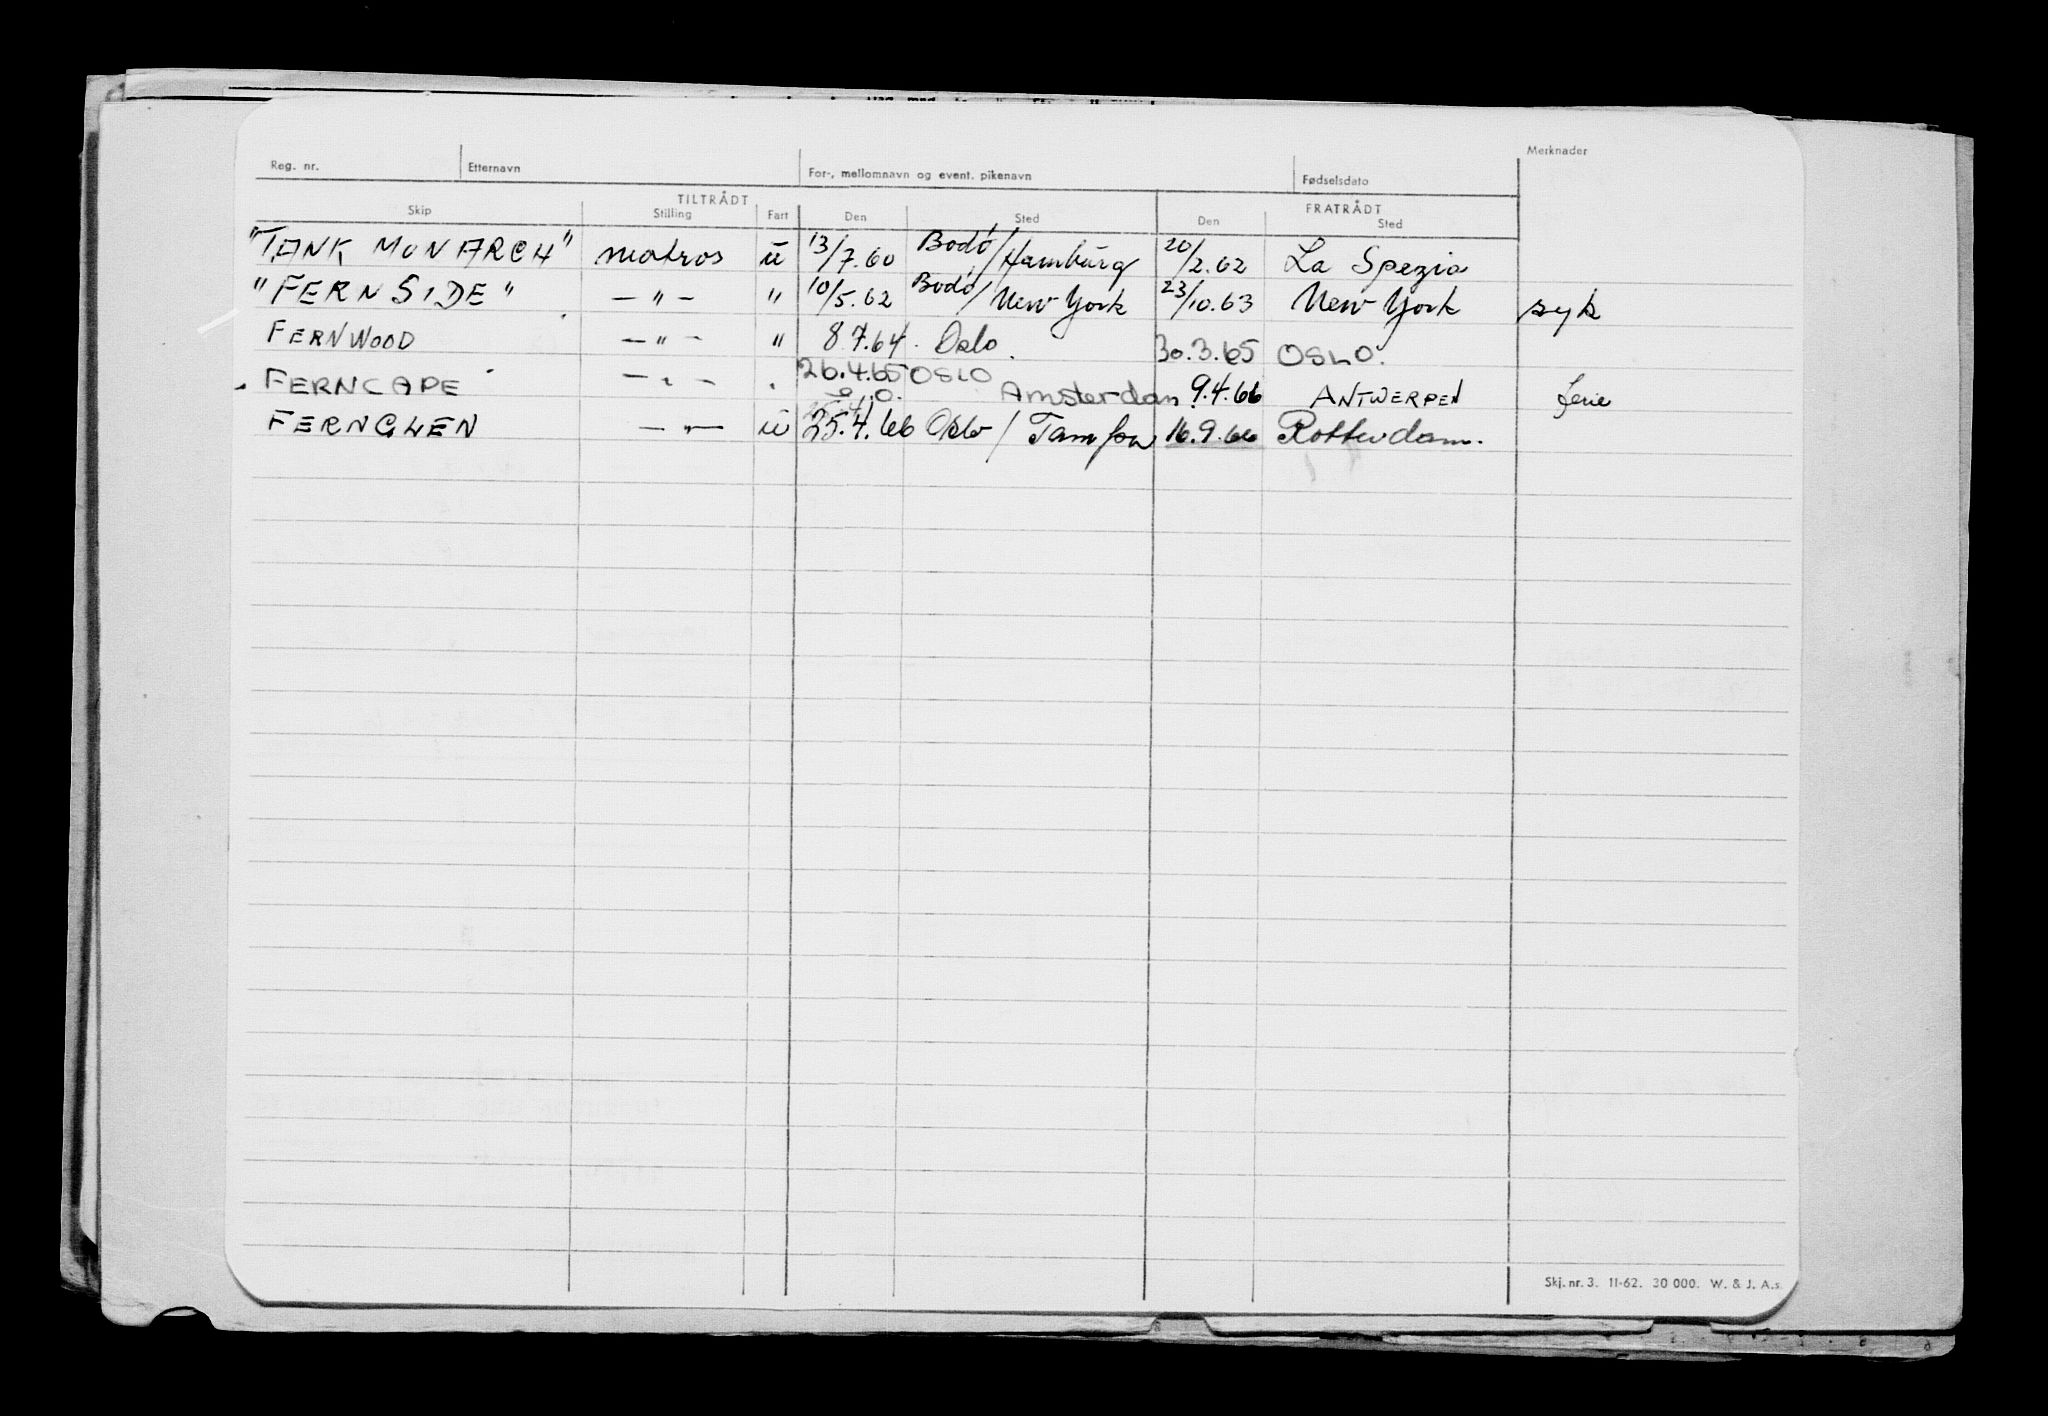 Merknader
Reg. nr. Etternavn For-, mellomnavn og event. pikenavn Fødselsdato
TILTRÅDT FRATRÅDT
Skip Stilling Fart Den Sted Den Sted
"TANK MONARCH" matros u 13/7.60 Bodø/Hamburg 20/2.62 La Spezia
"FERNSIDE" — " — " 10/5.62 Bodø/New York 23/10.63 New York syk
FERNWOOD — " — " 8.7.64. Oslo. 30.3.65 OSLO.
FERNCAPE — " — " 26.4.65 OSLO Amsterdam 9.4.66 ANTWERPEN ferie
FERNGLEN — " — u 25.4.66 Oslo / Tampa 16.9.66 Rotterdam.
Skj. nr. 3. 11-62. 30 000. W. & J. A.s.